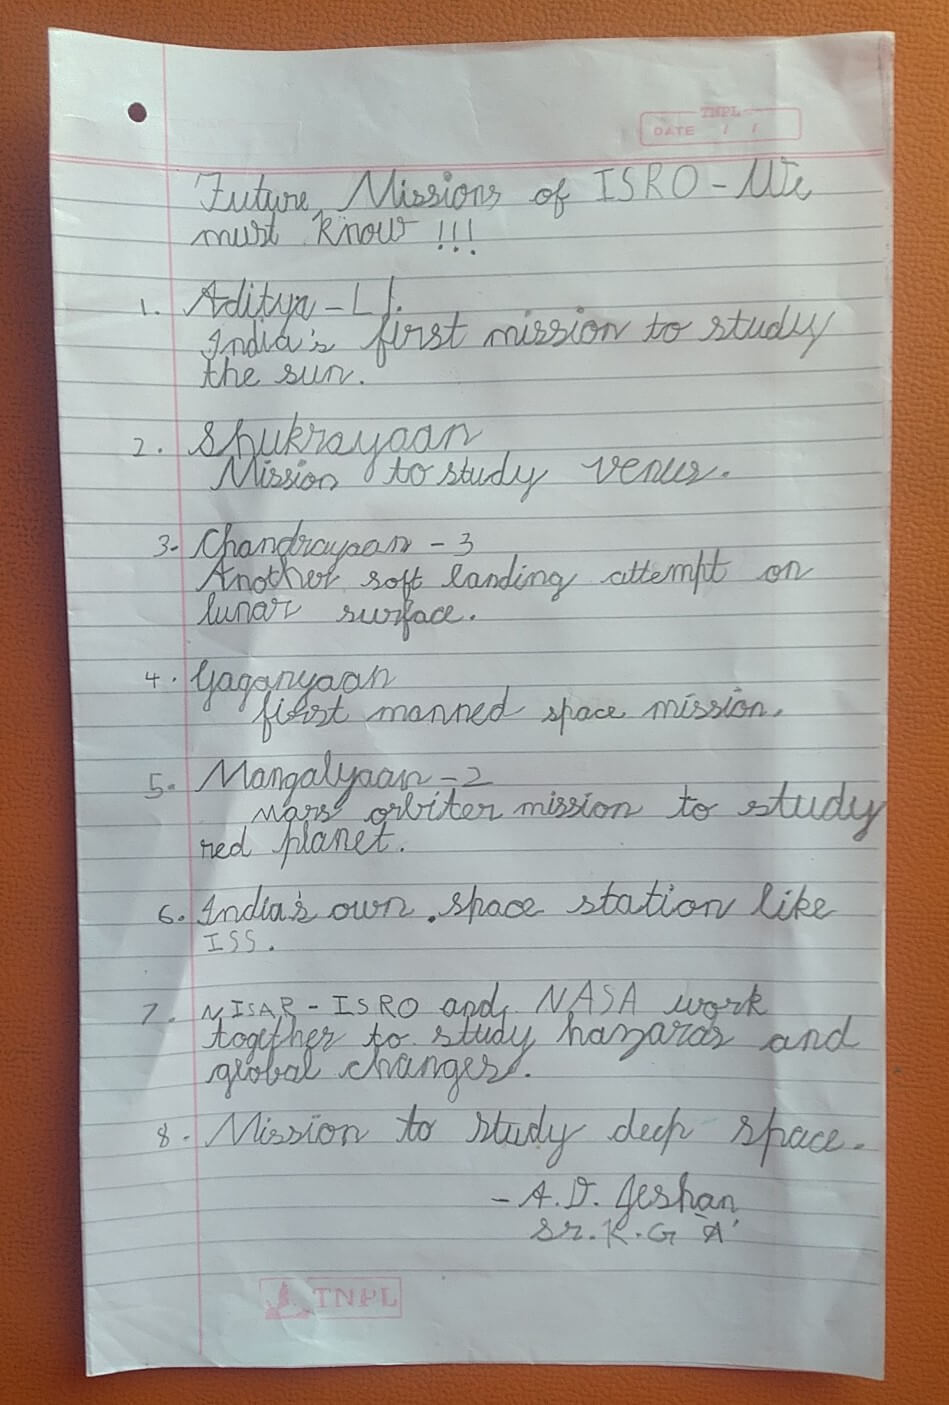 TNPL
DATE / /
Future Missions of ISRO - We
must know !!!
1. Aditya - L1.
India's first mission to study
the sun.
2. Shukrayaan
Mission to study venus.
3. Chandrayaan - 3
Another soft landing attempt on
lunar surface.
4. Gaganyaan
first manned space mission.
5. Mangalyaan - 2
Mars orbiter mission to study
red planet.
6. India's own space station like
ISS.
7. NISAR - ISRO and NASA work
together to study hazards and
global changes.
8. Mission to study deep space.
- A.D. Jeshan
Sr. K.G 'A'
TNPL